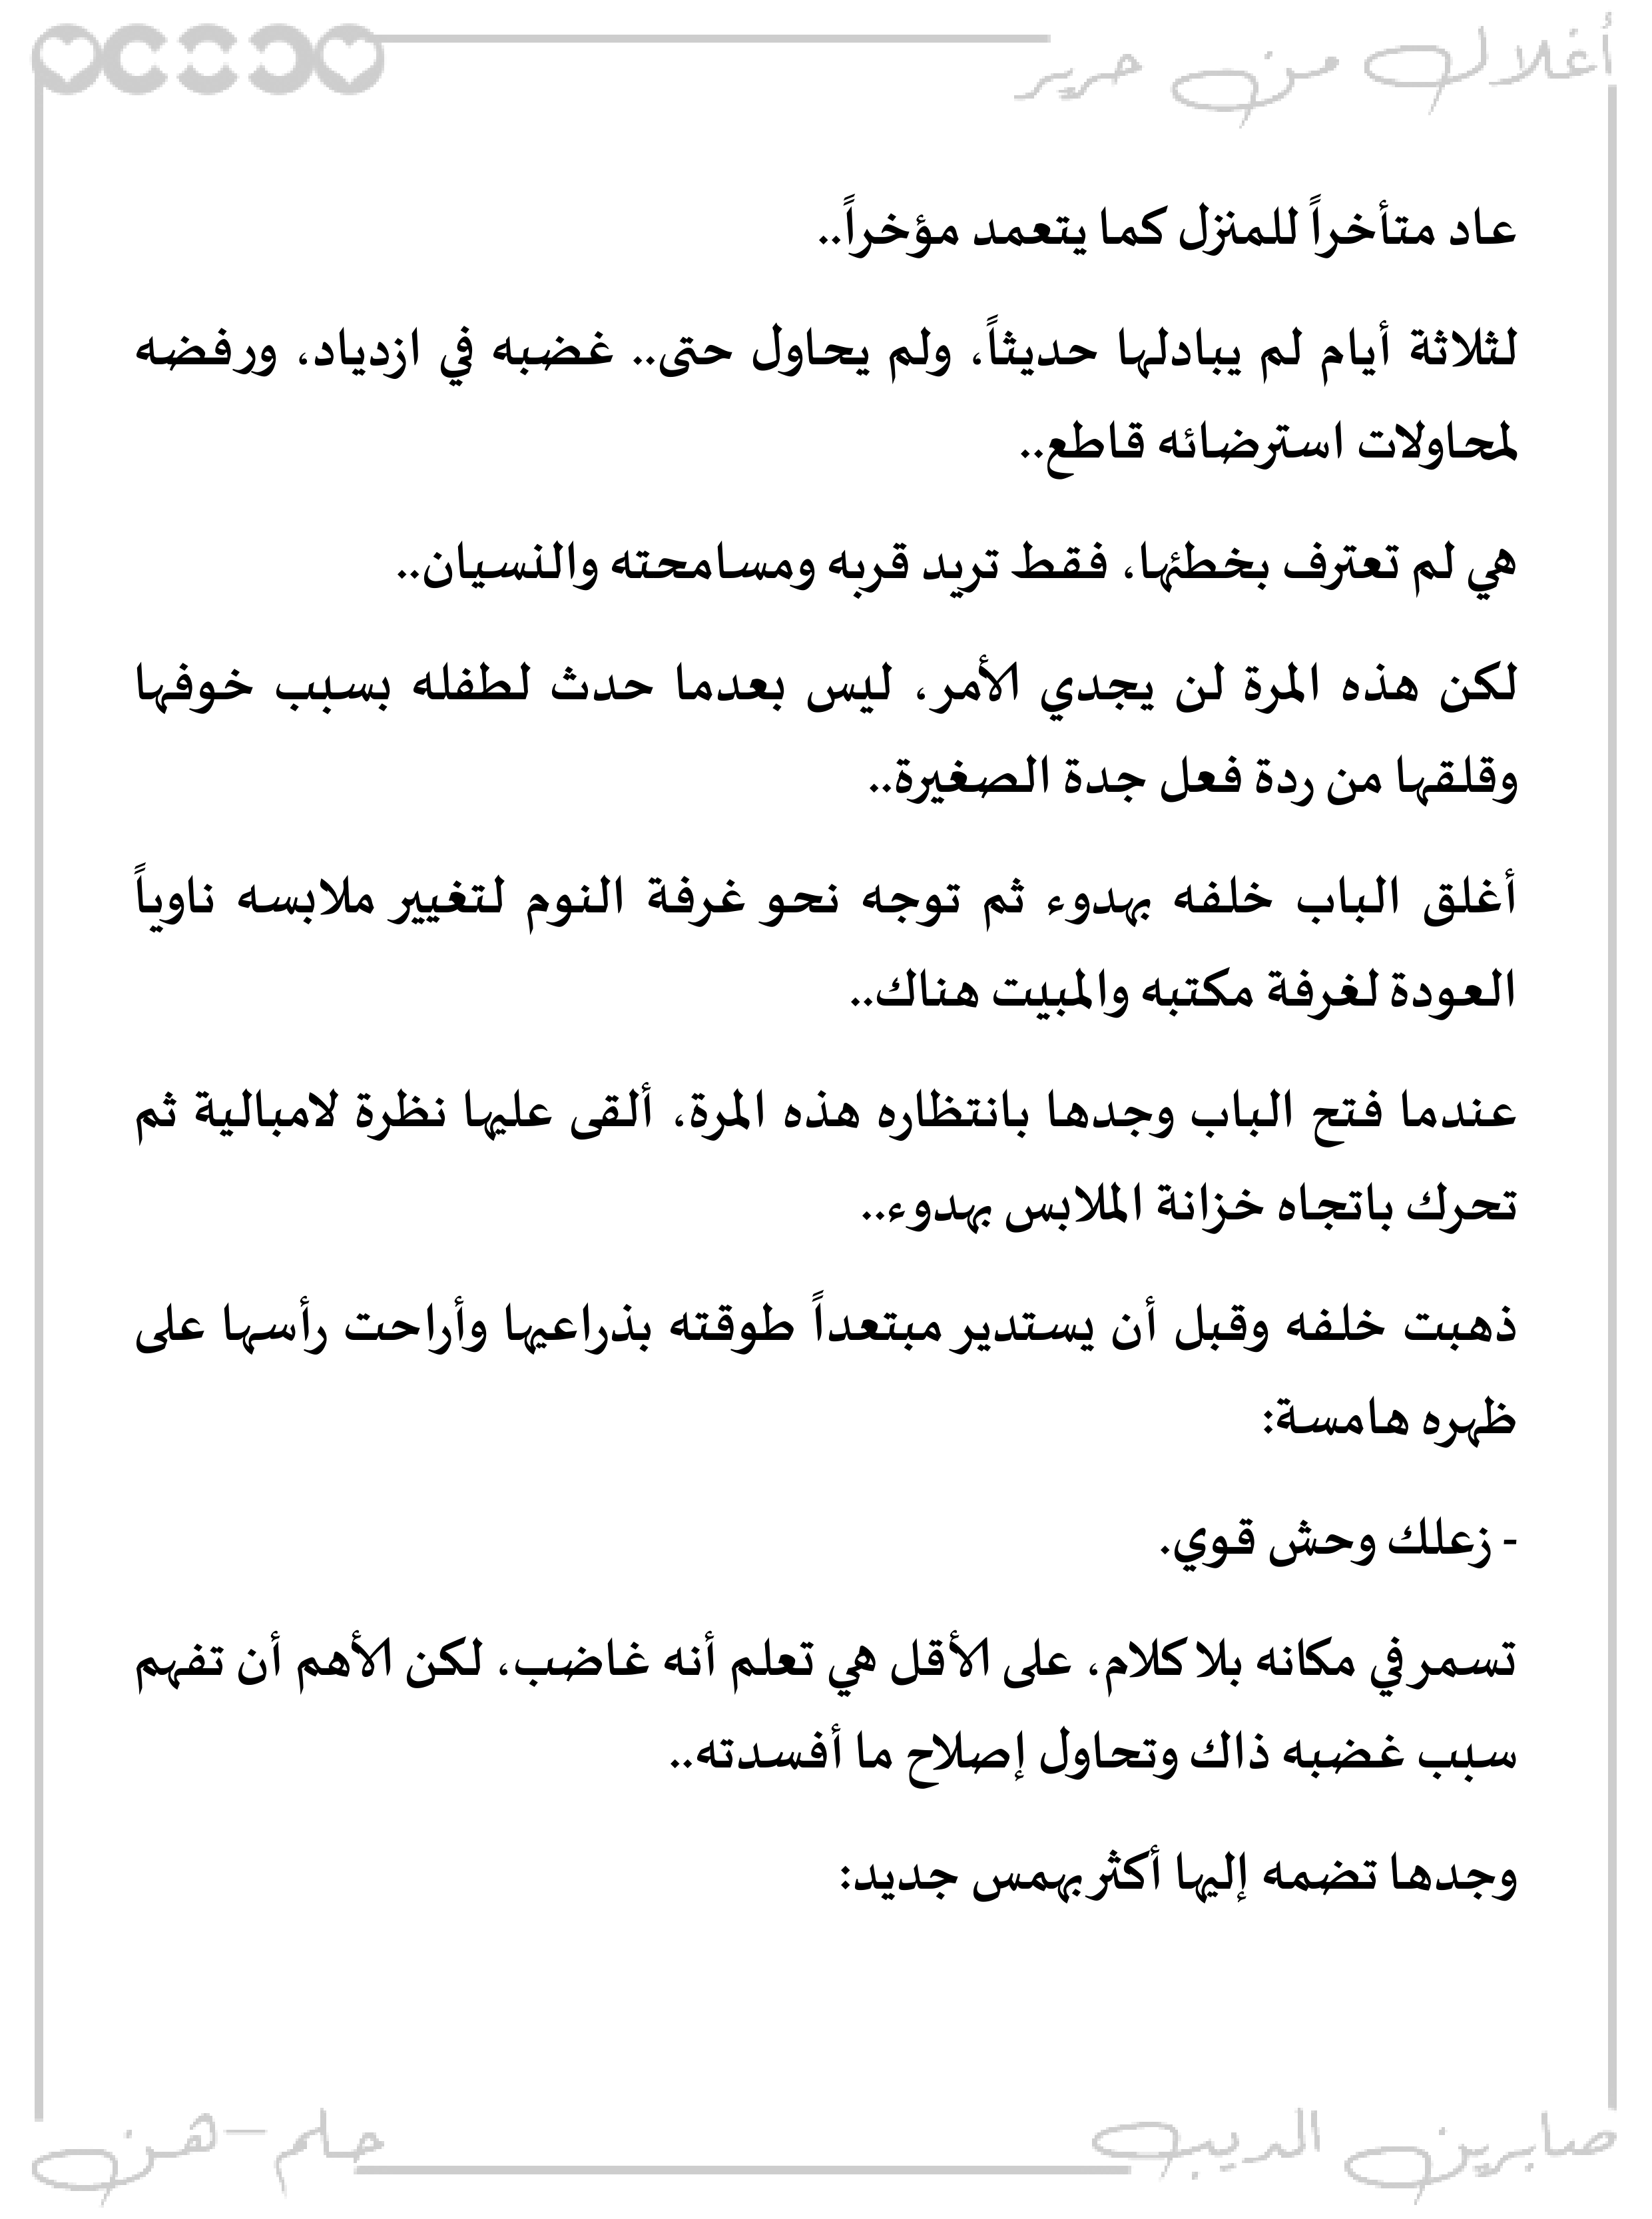 أغلال من حرير
عاد متأخراً للمنزل كما يتعمد مؤخراً..
لثلاثة أيام لم يبادلها حديثاً، ولم يحاول حتى.. غضبه في ازدياد، ورفضه
لمحاولات استرضائه قاطع..
هي لم تعترف بخطئها، فقط تريد قربه ومسامحته والنسيان..
لكن هذه المرة لن يجدي الأمر، ليس بعدما حدث لطفله بسبب خوفها
وقلقها من ردة فعل جدة الصغيرة..
أغلق الباب خلفه بهدوء ثم توجه نحو غرفة النوم لتغيير ملابسه ناوياً
العودة لغرفة مكتبه والمبيت هناك..
عندما فتح الباب وجدها بانتظاره هذه المرة، ألقى عليها نظرة لامبالية ثم
تحرك باتجاه خزانة الملابس بهدوء..
ذهبت خلفه وقبل أن يستدير مبتعداً طوقته بذراعيها وأراحت رأسها على
ظهره هامسة:
- زعلك وحش قوي.
تسمر في مكانه بلا كلام، على الأقل هي تعلم أنه غاضب، لكن الأهم أن تفهم
سبب غضبه ذاك وتحاول إصلاح ما أفسدته..
وجدها تضمه إليها أكثر بهمس جديد:
صابرين الديب
حلم-هن